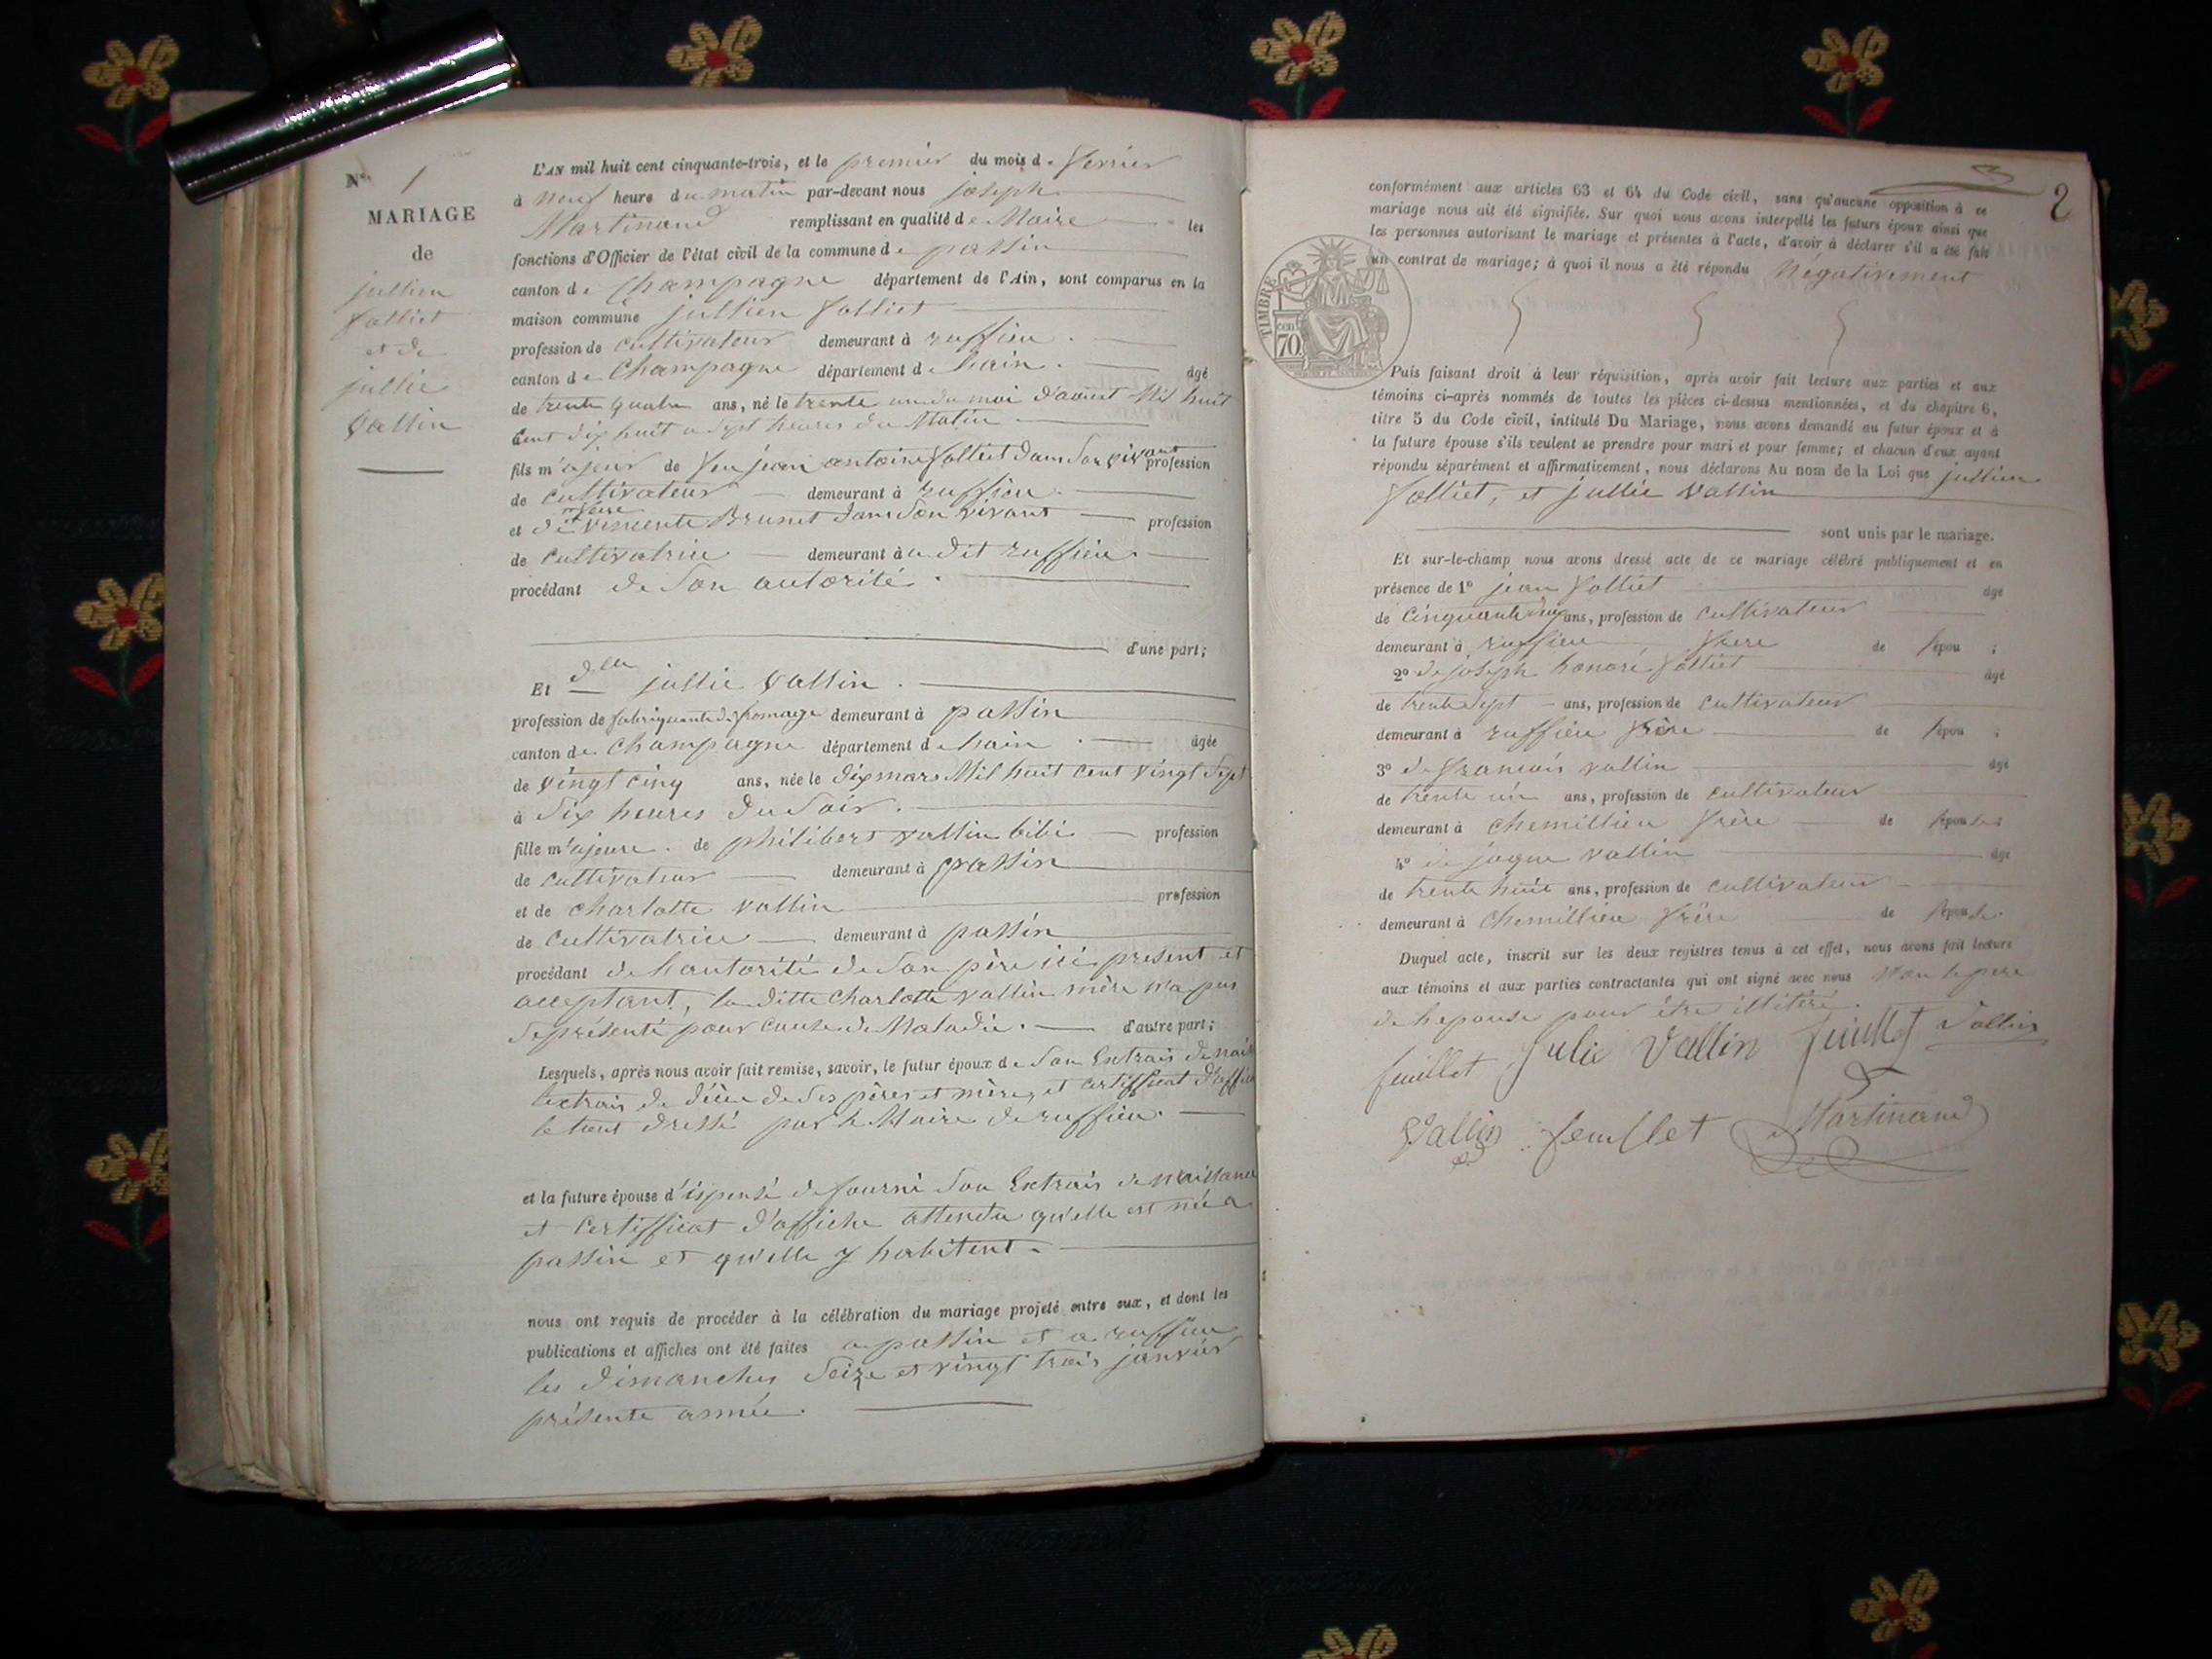 N.° 1
MARIAGE
de
jullien
folliet
et de
jullie
Vallin
L'AN mil huit cent cinquante-trois, et le premier du mois de fevrier
à neuf heure du matin par-devant nous joseph
Martinand remplissant en qualité de Maire les
fonctions d'Officier de l'état civil de la commune de passin
canton de Champagne département de l'Ain, sont comparus en la
maison commune jullien folliet
profession de cultivateur demeurant à ruffieu
canton de Champagne département de lain. âgé
de trente quatre ans, né le trente un du moi d'aoust Mil huit
Cent dix huit a Sept heures du Matin
fils majeur de feu jean antoine folliet dans Son vivant profession
de cultivateur demeurant à ruffieu
et de vincente Brunet dans Son vivant profession
de cultivatrice demeurant à a dit ruffieu.
procédant de Son autorité.
d'une part;
Et dlle jullie Vallin.
profession de fabriquante de fromage demeurant à passin
canton de Champagne département de lain. âgée
de vingt cinq ans, née le dix mars Mil huit Cent vingt Sept
à Six heures du Soir.
fille m'ajeure. de philibert vallin bibi profession
de cultivateur demeurant à passin
et de Charlotte vallin profession
de Cultivatrice demeurant à passin
procédant de lautorité de Son père ici présent et
acceptant, la ditte Charlotte vallin mère na pas
Se présenté pour cause de Maladie. d'autre part;
Lesquels, après nous avoir fait remise, savoir, le futur époux de Son Extrais de nais
lextrais de décé de Ses pères et mères et certifficat d'affich
le tout dressé par le Maire de ruffieu.
et la future épouse d'ispensé de fourni Son Extrais de naissance
et Certifficat d'affiche attendu qu'elle est née a
passin et qu'elle y habitent.
nous ont requis de procéder à la célébration du mariage projeté entre eux, et dont les
publications et affiches ont été faites a passin et a ruffieu
les dimanches Seize et vingt trois janvier
présente année.
2
conformément aux articles 63 et 64 du Code civil, sans qu'aucune opposition à ce
mariage nous ait été signifiée. Sur quoi nous avons interpellé les futurs époux ainsi que
les personnes autorisant le mariage et présentes à l'acte, d'avoir à déclarer s'il a été fait
un contrat de mariage; à quoi il nous a été répondu Négativement
TIMBRE
cen 70
Puis faisant droit à leur réquisition, après avoir fait lecture aux parties et aux
témoins ci-après nommés de toutes les pièces ci-dessus mentionnées, et du chapitre 6,
titre 5 du Code civil, intitulé Du Mariage, nous avons demandé au futur époux et à
la future épouse s'ils veulent se prendre pour mari et pour femme; et chacun d'eux ayant
répondu séparément et affirmativement, nous déclarons Au nom de la Loi que jullien
folliet, et jullie vallin
sont unis par le mariage.
Et sur-le-champ nous avons dressé acte de ce mariage célébré publiquement et en
présence de 1° jean folliet âgé
de Cinquante ans, profession de cultivateur
demeurant à ruffieu frere de l'épou ;
2° de joseph honoré folliet âgé
de trente Sept ans, profession de cultivateur
demeurant à ruffieu frère de l'épou ;
3° de francois vallin âgé
de trente un ans, profession de cultivateur
demeurant à Chemillieu frère de l'épouse;
4° de jaque vallin âgé
de trente huit ans, profession de cultivateur
demeurant à Chemillieu frère de l'épouse.
Duquel acte, inscrit sur les deux registres tenus à cet effet, nous avons fait lecture
aux témoins et aux parties contractantes qui ont signé avec nous Non le pere
de lepouse pour être illitéré.
feuillet Julie Vallin feuillet Vallin
Vallin feuillet Martinand